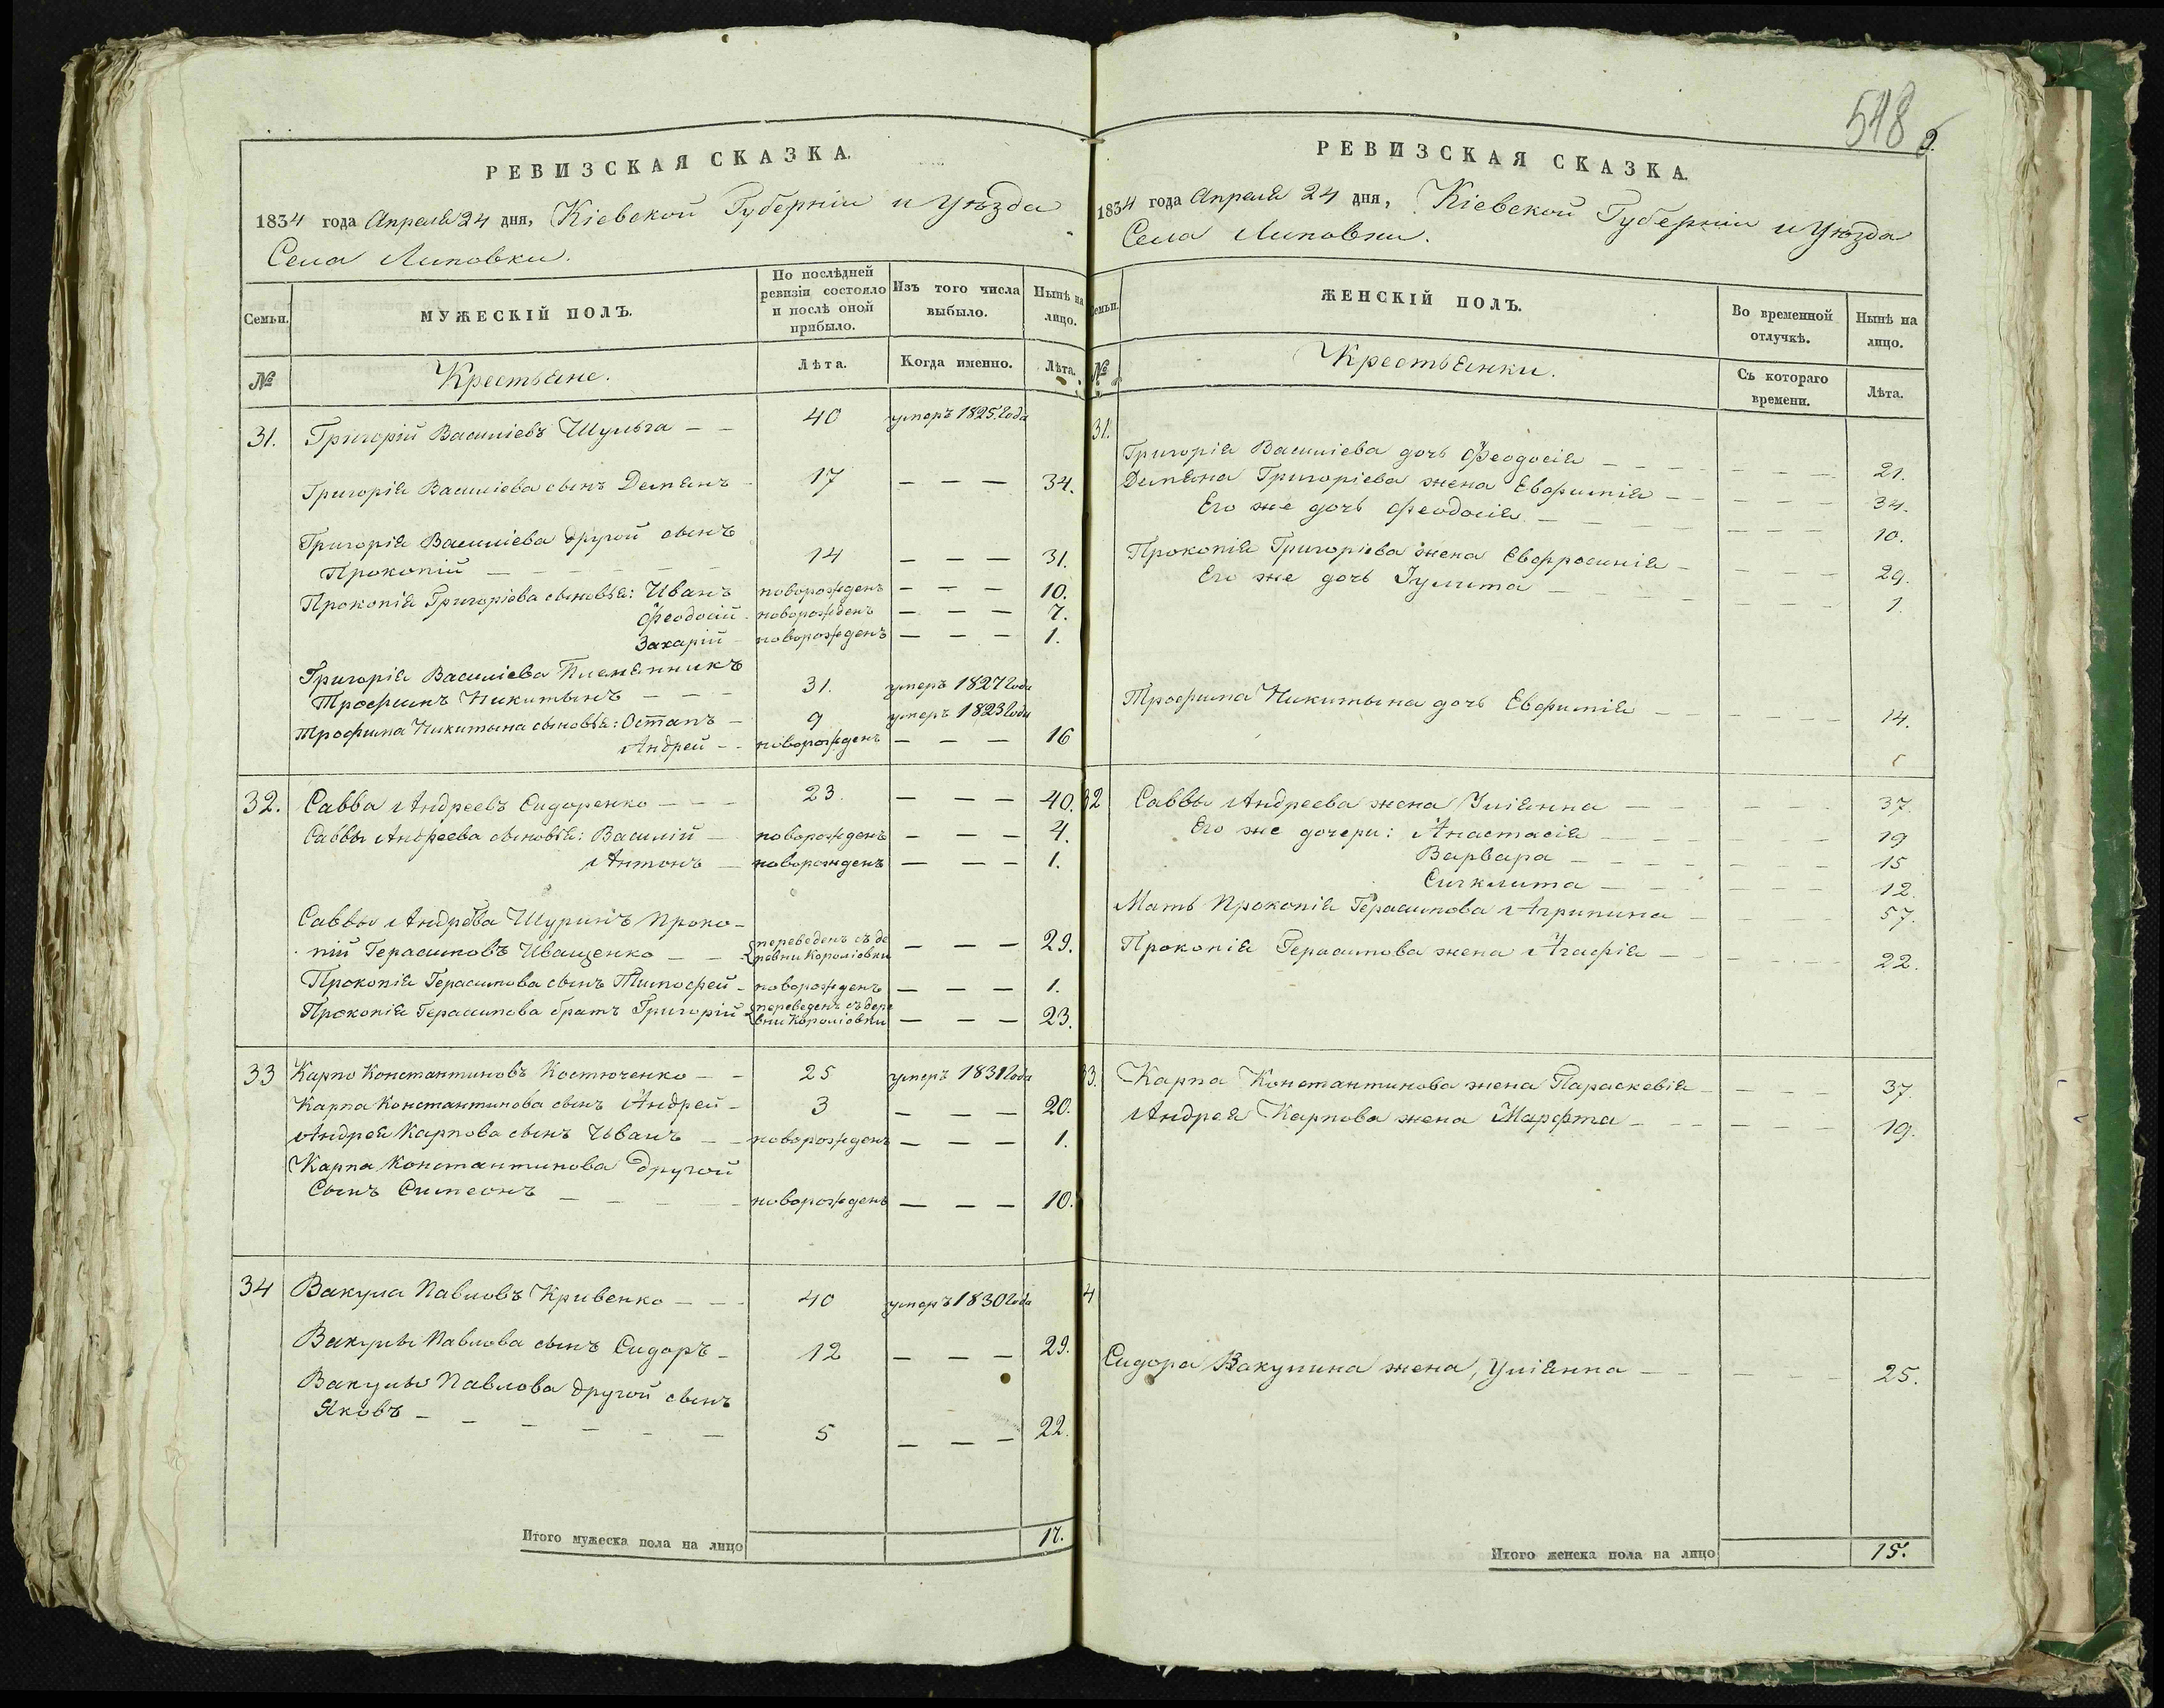 РЕВИЗСКАЯ СКАЗКА.
1834 года Апреля 24 дня, Кіевской Губерніи и Уѣзда
Села Липовки.
Семьи.
МУЖЕСКІЙ ПОЛЪ.
По послѣдней
ревизіи состояло
и послѣ оной
прибыло.
Изъ того числа
выбыло.
Нынѣ на
лицо.
№
Крестьяне.
Лѣта.
Когда именно.
Лѣта.
31. Григорій Василіевъ Шульга — — 40 умеръ 1825 года
Григорія Василіева сынъ Демянъ - 17 — — — 34.
Григорія Василіева другой сынъ
Прокопій — — — — — 14 — — — 31.
Прокопія Григоріева сыновья: Иванъ новорожденъ — — — 10.
Феодосій - новорожденъ — — — 7.
Захарій - новорожденъ — — — 1.
Григорія Василіева Племянникъ
Трофимъ Никитынъ — — — 31. умеръ 1827 года
Трофима Никитына сыновья: Остапъ — 9 умеръ 1823 года
Андрей - - новорожденъ — — — 16
32. Савва Андреевъ Сидоренко — — — 23. — — — 40.
Саввы Андреева сыновья: Василій — новорожденъ — — — 4.
Антонъ — новорожденъ — — — 1.
Саввы Андрева Шуринъ Проко-
пій Герасимовъ Иващенко — — переведенъ съ де
ревни Короліовки — — — 29.
Прокопія Герасимова сынъ Тимофей - новорожденъ — — — 1.
Прокопія Герасимова братъ Григорій переведенъ съ дере
вни Короліовки — — — 23.
33 Карпо Константиновъ Костюченко — - 25 умеръ 1831 года
Карпа Константинова сынъ Андрей - 3 — — — 20.
Андрея Карпова сынъ Иванъ — - новорожденъ — — — 1.
Карпа Константинова другой
Сынъ Симеонъ — — — — - новорожденъ — — — 10.
34 Вакула Павловъ Кривенко — — - 40 умеръ 1830 года
Вакулы Павлова сынъ Сидоръ - 12 — — — 29.
Вакулы Павлова другой сынъ
Яковъ — — — — — — 5 — — — 22.
Итого мужеска пола на лицо 17.
548
9.
РЕВИЗСКАЯ СКАЗКА.
1834 года Апреля 24 дня, Кіевской Губерніи и Уѣзда
Села Липовки.
Семьи.
ЖЕНСКІЙ ПОЛЪ.
Во временной
отлучкѣ.
Нынѣ на
лицо.
№
Крестьянки.
Съ котораго
времени.
Лѣта.
31.
Григорія Василіева дочь Феодосія — — — — — — 21.
Демяна Григоріева жена Евфимія — — — — — 34.
Его же дочь Феодосія — — — — — — — 10.
Прокопія Григоріева жена Евфросинія — — — — 29.
Его же дочь Іулита — — — — — — — 1.
Трофима Никитына дочь Евфимія — — — — — — 14.
32 Саввы Андреева жена Уліянна — — — — — — 37.
Его же дочери: Анастасія — — — — — — 19
Варвара — — — — — — — 15
Сигклита — — — — — — 12.
Мать Прокопія Герасимова Агрипина — — — — 57.
Прокопія Герасимова жена Агафія — — — — — 22.
33. Карпа Константинова жена Параскевія — — — — 37.
Андрея Карпова жена Марфта — — — — — — 19.
4
Сидора Вакулина жена, Уліянна — — — — — 25.
Итого женска пола на лицо 15.